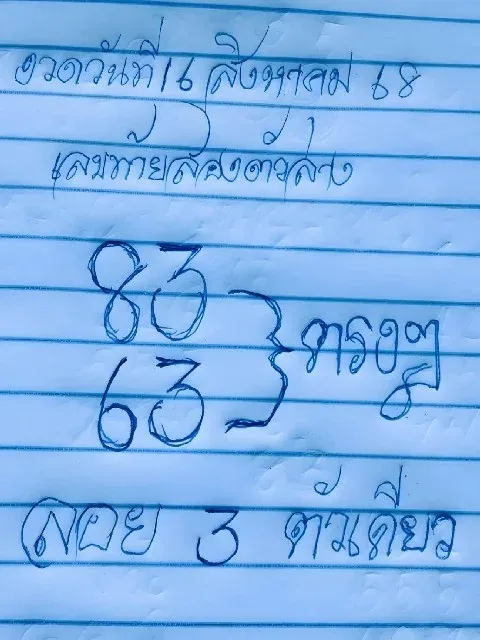 งวดวันที่ 16 สิงหาคม 68
เลขท้ายสองตัวล่าง
83
63 } ตรงๆ
ลอย 3 ตัวเดียว